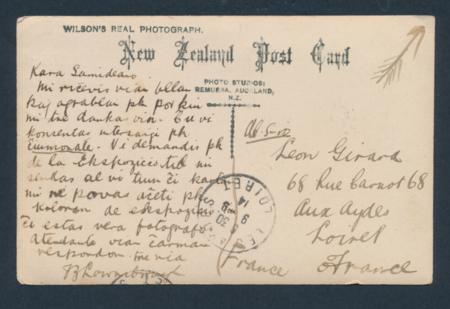 WILSON'S REAL PHOTOGRAPH.
New Zealand Post Card
PHOTO STUDIOS:
REMUERA, AUCKLAND,
N.Z.
Kara Samideano
Mi ricevis vian belan
kaj agrablan pk por kiu
mi tre danka vin. Ĉu vi
konsentas interŝanĝi pk
ĉiumonate. Vi demandis pk
de la Ekspozicio sed mi
sendas al vi tiun ĉi kaj
mi ne povas aĉeti pk
de ekspozicio
ĉi estas vera fotografo
atendante vian ĉarman
respondon mi via
Leon Girard
68 Rue Carnot 68
Aux Aydes
Loiret
France
France
LOIRET